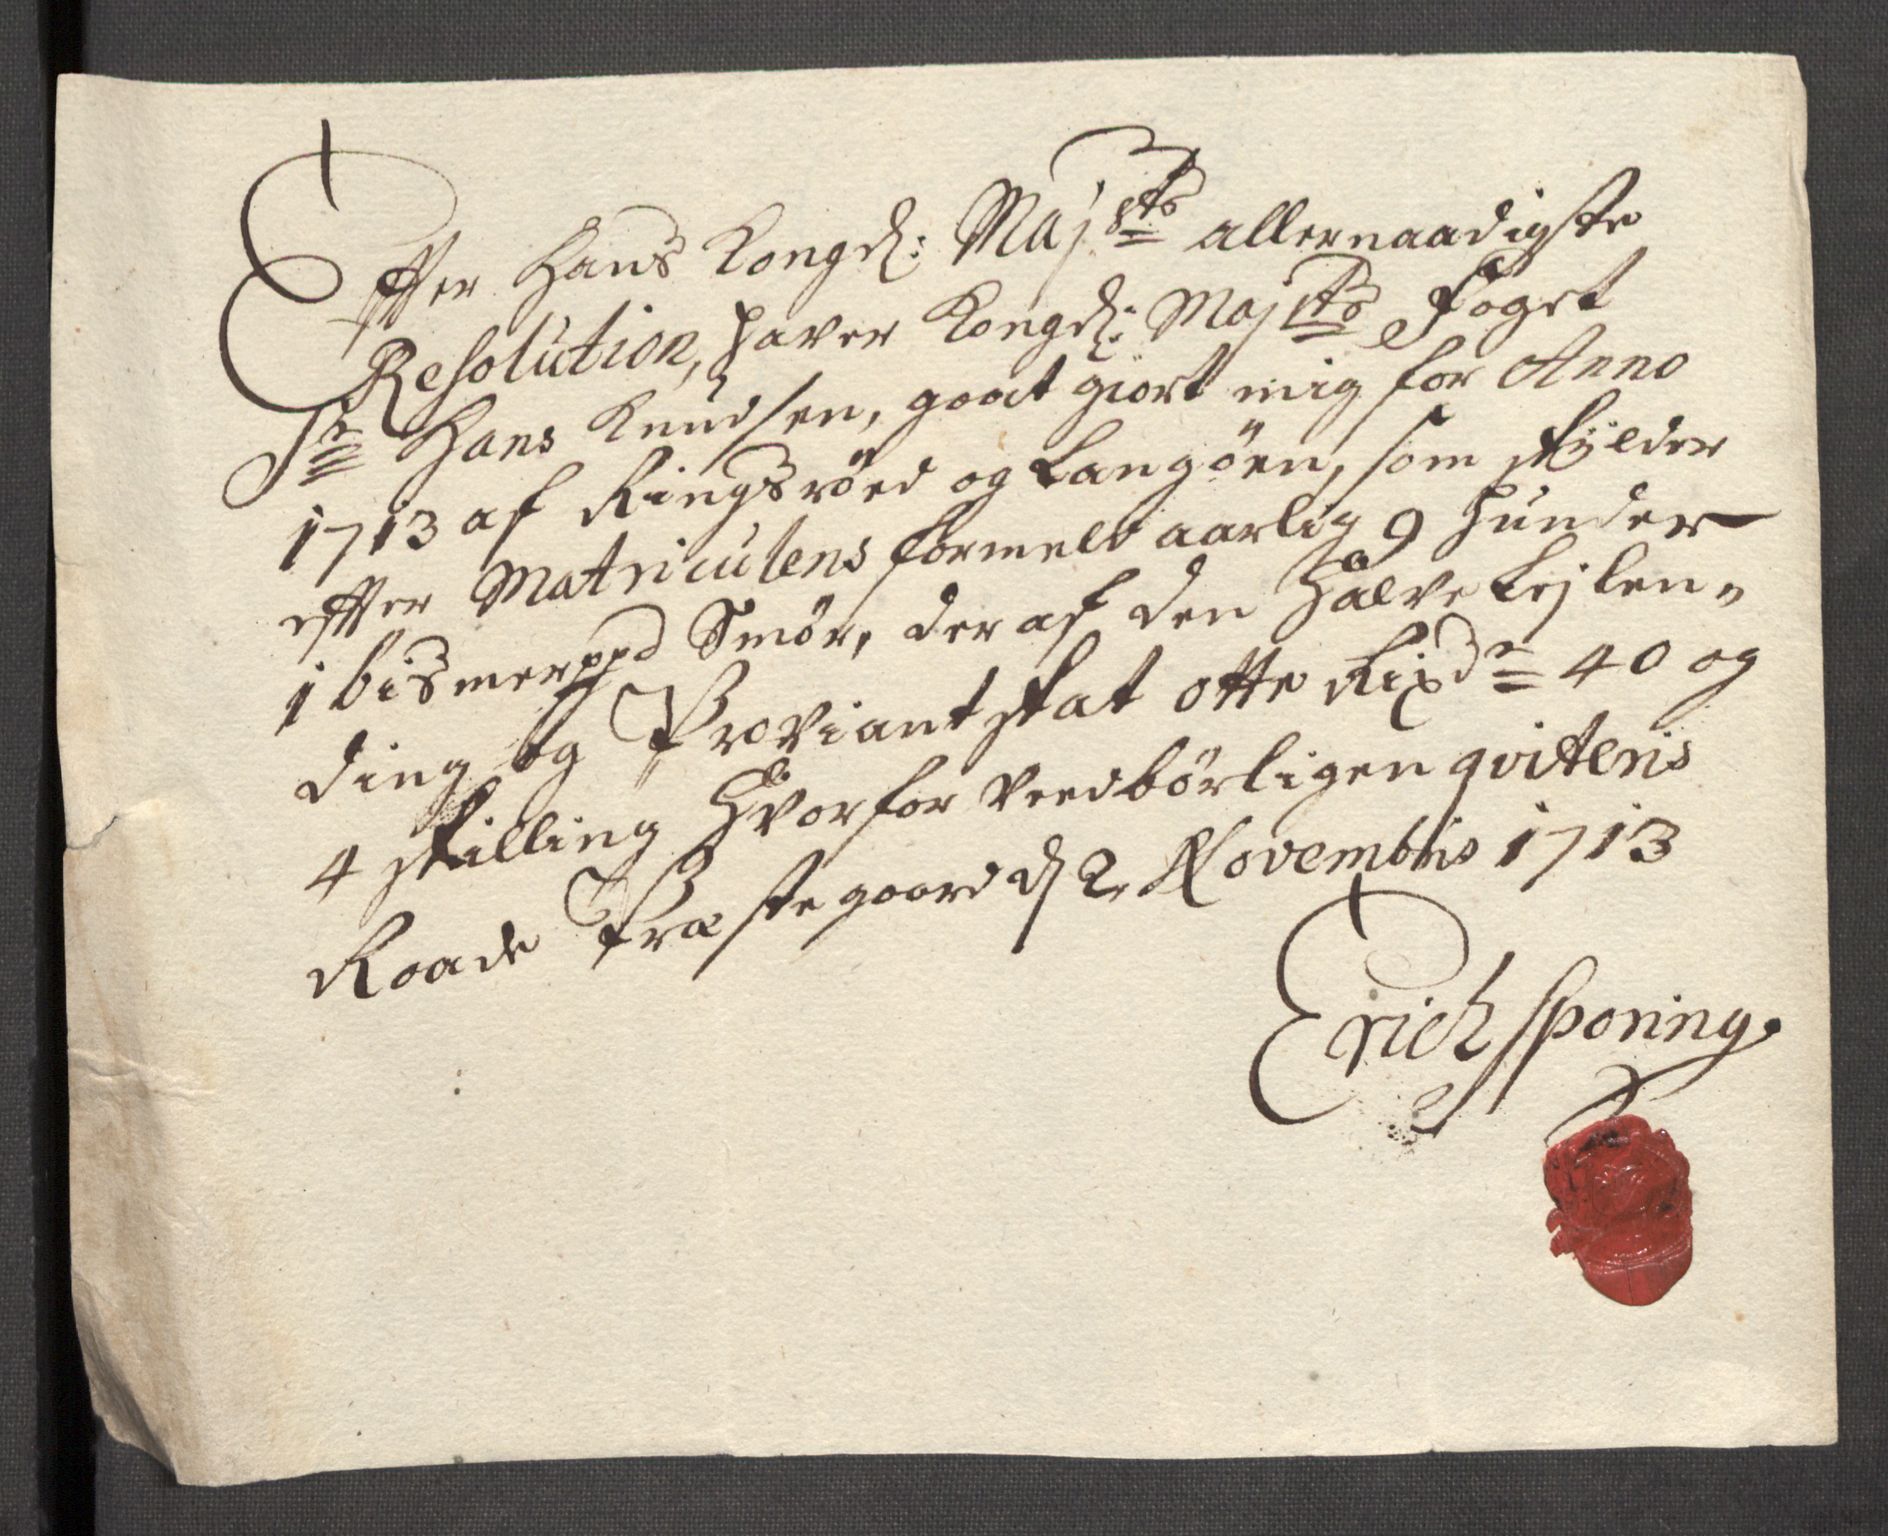 Effter Hans Kongl: Majsts allernaadigste
Resolution, haver Kongl: Majsts Foget
Sr Hans Knudsen, goat giort mig for Anno
1713 af Ringsröed og Langöen, som skylder
effter Matriculens formeld aarlig 9 hunder
1 bismerppd Smör, der af den halve Lejlen-
ding og Proviantskat otte Rixdr 40 og
4 skilling Hvorfor veedbörligen qviteris
Raade Præstegaard d 2 Novembris 1713
Erich Sporing.